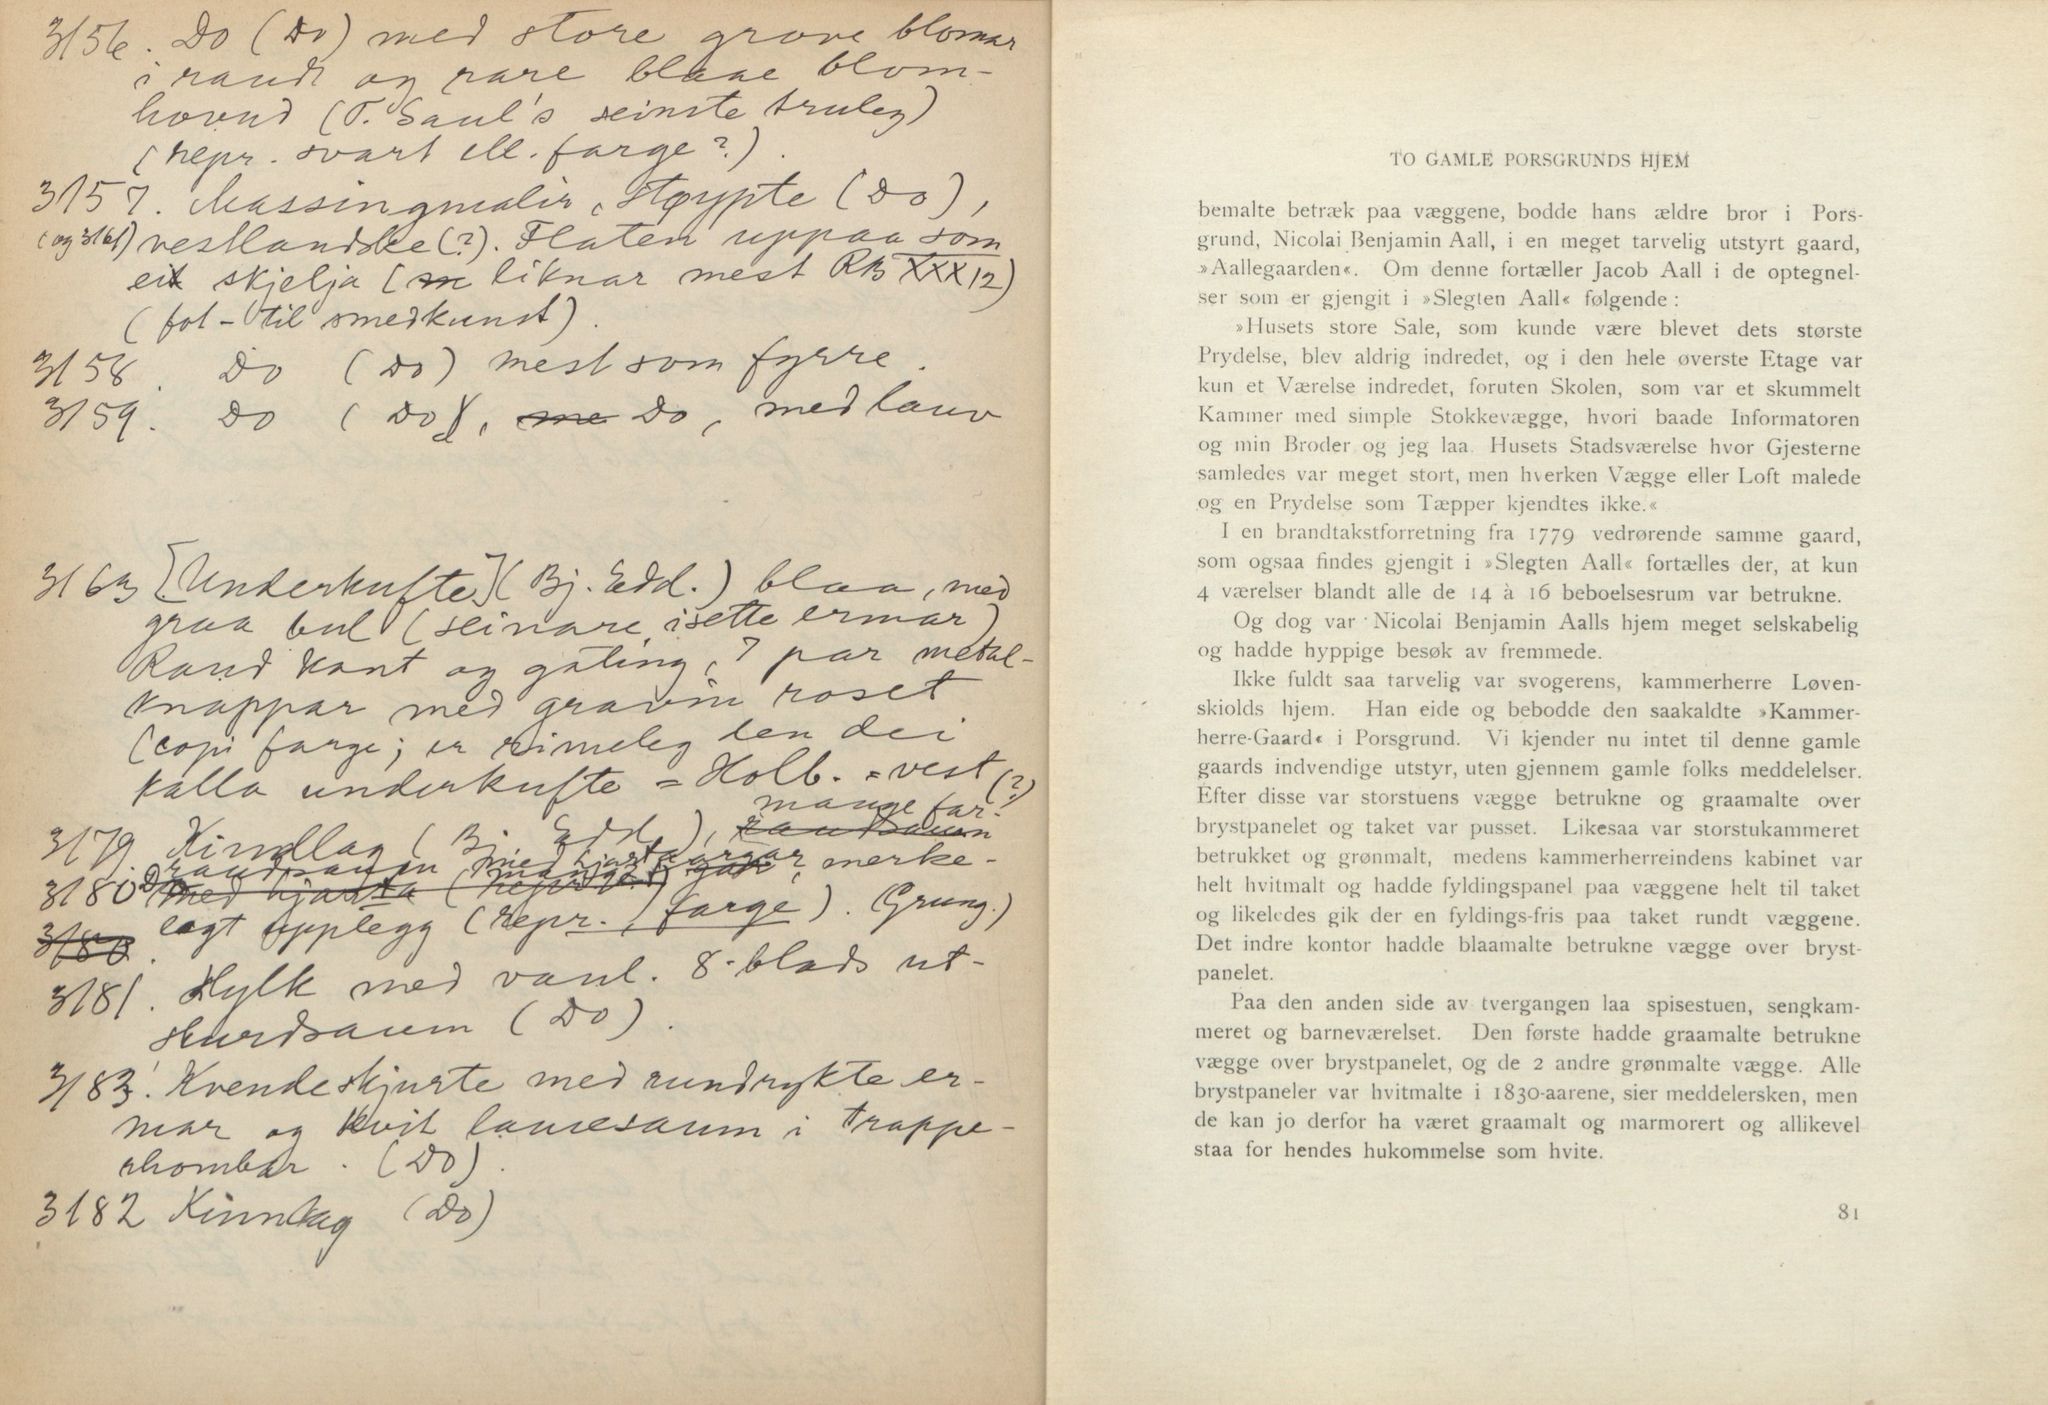 3156. Do (Do) med store grove blomar
i raudt og rare blaae blom-
hovud (T. Saul's seinste truleg)
(repr. svart ell. farge?).
3157. Massingmalir, støypte (Do),
(og 3161) vestlandske (?). Flaten uppaa som
eit skjelja (liknar mest RB XXX12)
(fot- til smedkunst).
3158. Do (Do) mest som fyrre.
3159. Do (Do), Do, med lauv
3163 [Underkufte] (Bj. Edd.) blaa, med
graa bul (seinare isette ermar)
Raud kant og gating, 7 par metal-
knappar med gravin roset
(copi farge; er rimeleg den dei
kalla underkufte = Holb. = vest (?)
mange far-
3179. Kinnlag (Bj. Edd.),
med hjarta, merke-
3180 Do
legt upplegg (repr., farge). (Grung.)
3180.
3181. Hylk med vanl. 8-blads ut-
skurdsaum (Do).
3183. Kvendeskjurte med rundrykte er-
mar og kvit lauvsaum i trappe-
rhombar. (Do).
3182 Kinnlag (Do)
TO GAMLE PORSGRUNDS HJEM
bemalte betræk paa væggene, bodde hans ældre bror i Pors-
grund, Nicolai Benjamin Aall, i en meget tarvelig utstyrt gaard,
»Aallegaarden«. Om denne fortæller Jacob Aall i de optegnel-
ser som er gjengit i »Slegten Aall« følgende:
»Husets store Sale, som kunde være blevet dets største
Prydelse, blev aldrig indredet, og i den hele øverste Etage var
kun et Værelse indredet, foruten Skolen, som var et skummelt
Kammer med simple Stokkevægge, hvori baade Informatoren
og min Broder og jeg laa. Husets Stadsværelse hvor Gjesterne
samledes var meget stort, men hverken Vægge eller Loft malede
og en Prydelse som Tæpper kjendtes ikke.«
I en brandtakstforretning fra 1779 vedrørende samme gaard,
som ogsaa findes gjengit i »Slegten Aall« fortælles der, at kun
4 værelser blandt alle de 14 à 16 beboelsesrum var betrukne.
Og dog var Nicolai Benjamin Aalls hjem meget selskabelig
og hadde hyppige besøk av fremmede.
Ikke fuldt saa tarvelig var svogerens, kammerherre Løven-
skiolds hjem. Han eide og bebodde den saakaldte »Kammer-
herre-Gaard« i Porsgrund. Vi kjender nu intet til denne gamle
gaards indvendige utstyr, uten gjennem gamle folks meddelelser.
Efter disse var storstuens vægge betrukne og graamalte over
brystpanelet og taket var pusset. Likesaa var storstukammeret
betrukket og grønmalt, medens kammerherreindens kabinet var
helt hvitmalt og hadde fyldingspanel paa væggene helt til taket
og likeledes gik der en fyldings-fris paa taket rundt væggene.
Det indre kontor hadde blaamalte betrukne vægge over bryst-
panelet.
Paa den anden side av tvergangen laa spisestuen, sengkam-
meret og barneværelset. Den første hadde graamalte betrukne
vægge over brystpanelet, og de 2 andre grønmalte vægge. Alle
brystpaneler var hvitmalte i 1830-aarene, sier meddelersken, men
de kan jo derfor ha været graamalt og marmorert og allikevel
staa for hendes hukommelse som hvite.
81